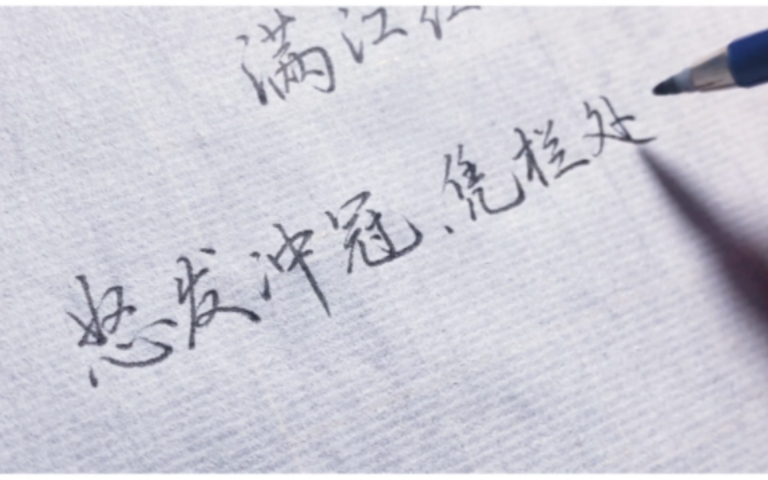 满江红
怒发冲冠、凭栏处